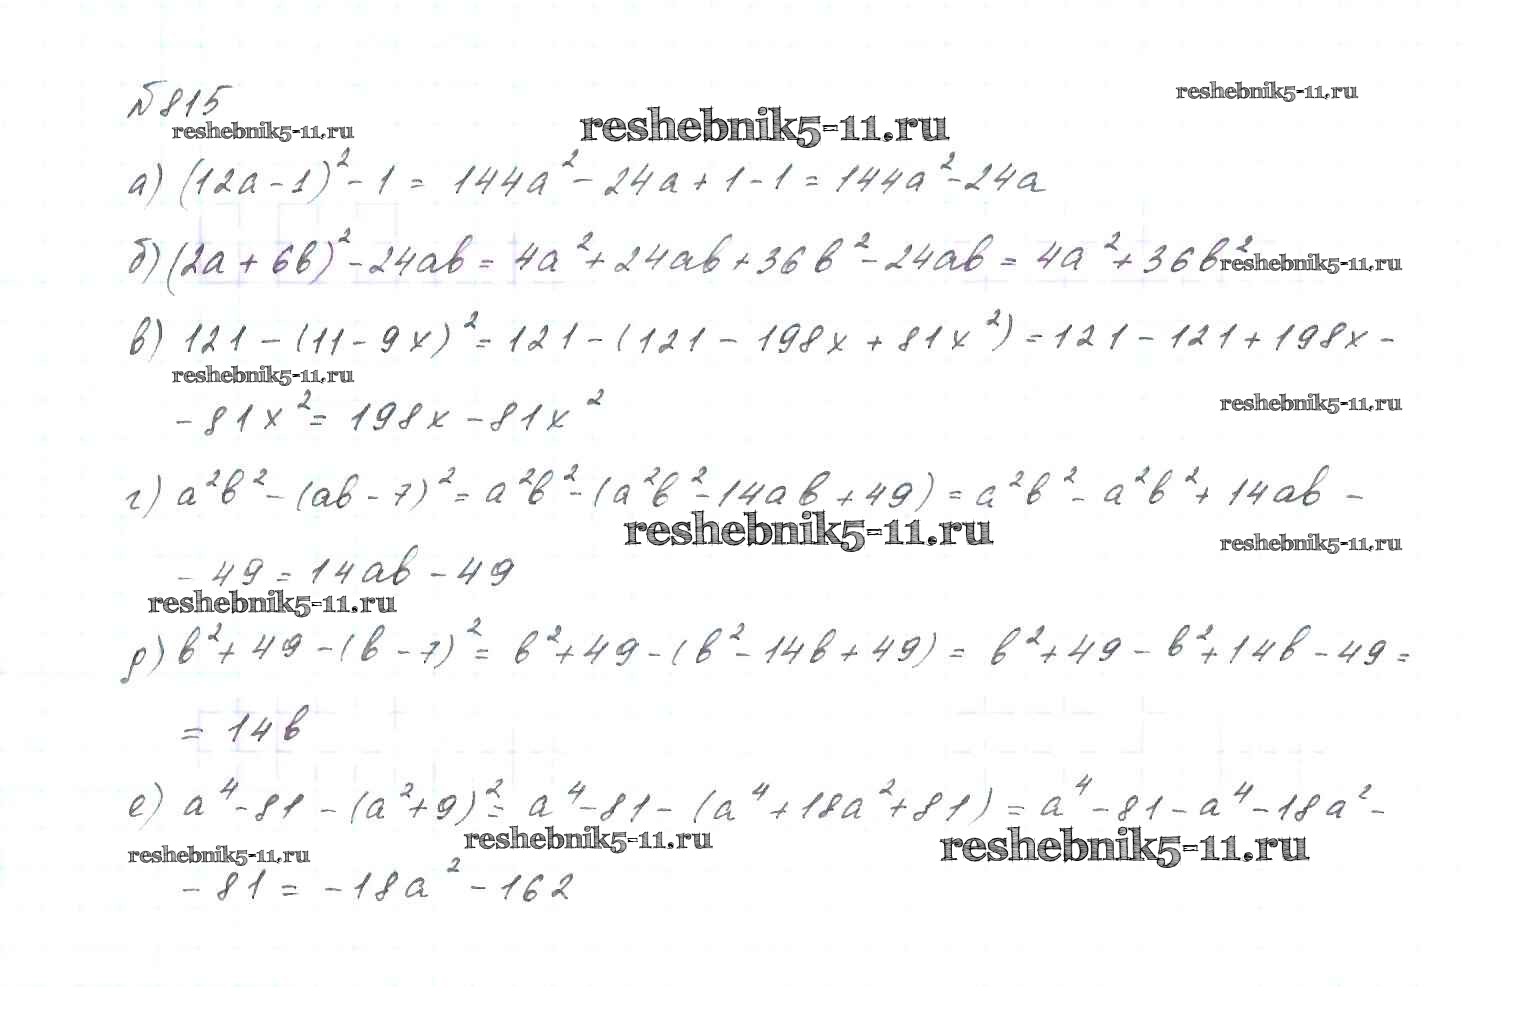 №815
reshebnik5-11.ru
reshebnik5-11.ru
reshebnik5-11.ru
а) (12a-1)²-1 = 144a²-24a+1-1=144a²-24a
б) (2a+6b)²-24ab = 4a²+24ab+36b²-24ab = 4a²+36b²
reshebnik5-11.ru
в) 121-(11-9x)²=121-(121-198x+81x²)=121-121+198x-
reshebnik5-11.ru
-81x²= 198x-81x²
reshebnik5-11.ru
г) a²b²-(ab-7)²= a²b²-(a²b²-14ab+49) = a²b²-a²b²+14ab-
reshebnik5-11.ru
reshebnik5-11.ru
-49=14ab-49
reshebnik5-11.ru
д) b²+49-(b-7)²= b²+49-(b²-14b+49) = b²+49-b²+14b-49=
= 14b
е) a⁴-81-(a²+9)²= a⁴-81-(a⁴+18a²+81) = a⁴-81-a⁴-18a²-
reshebnik5-11.ru
reshebnik5-11.ru
reshebnik5-11.ru
-81 = -18a²-162